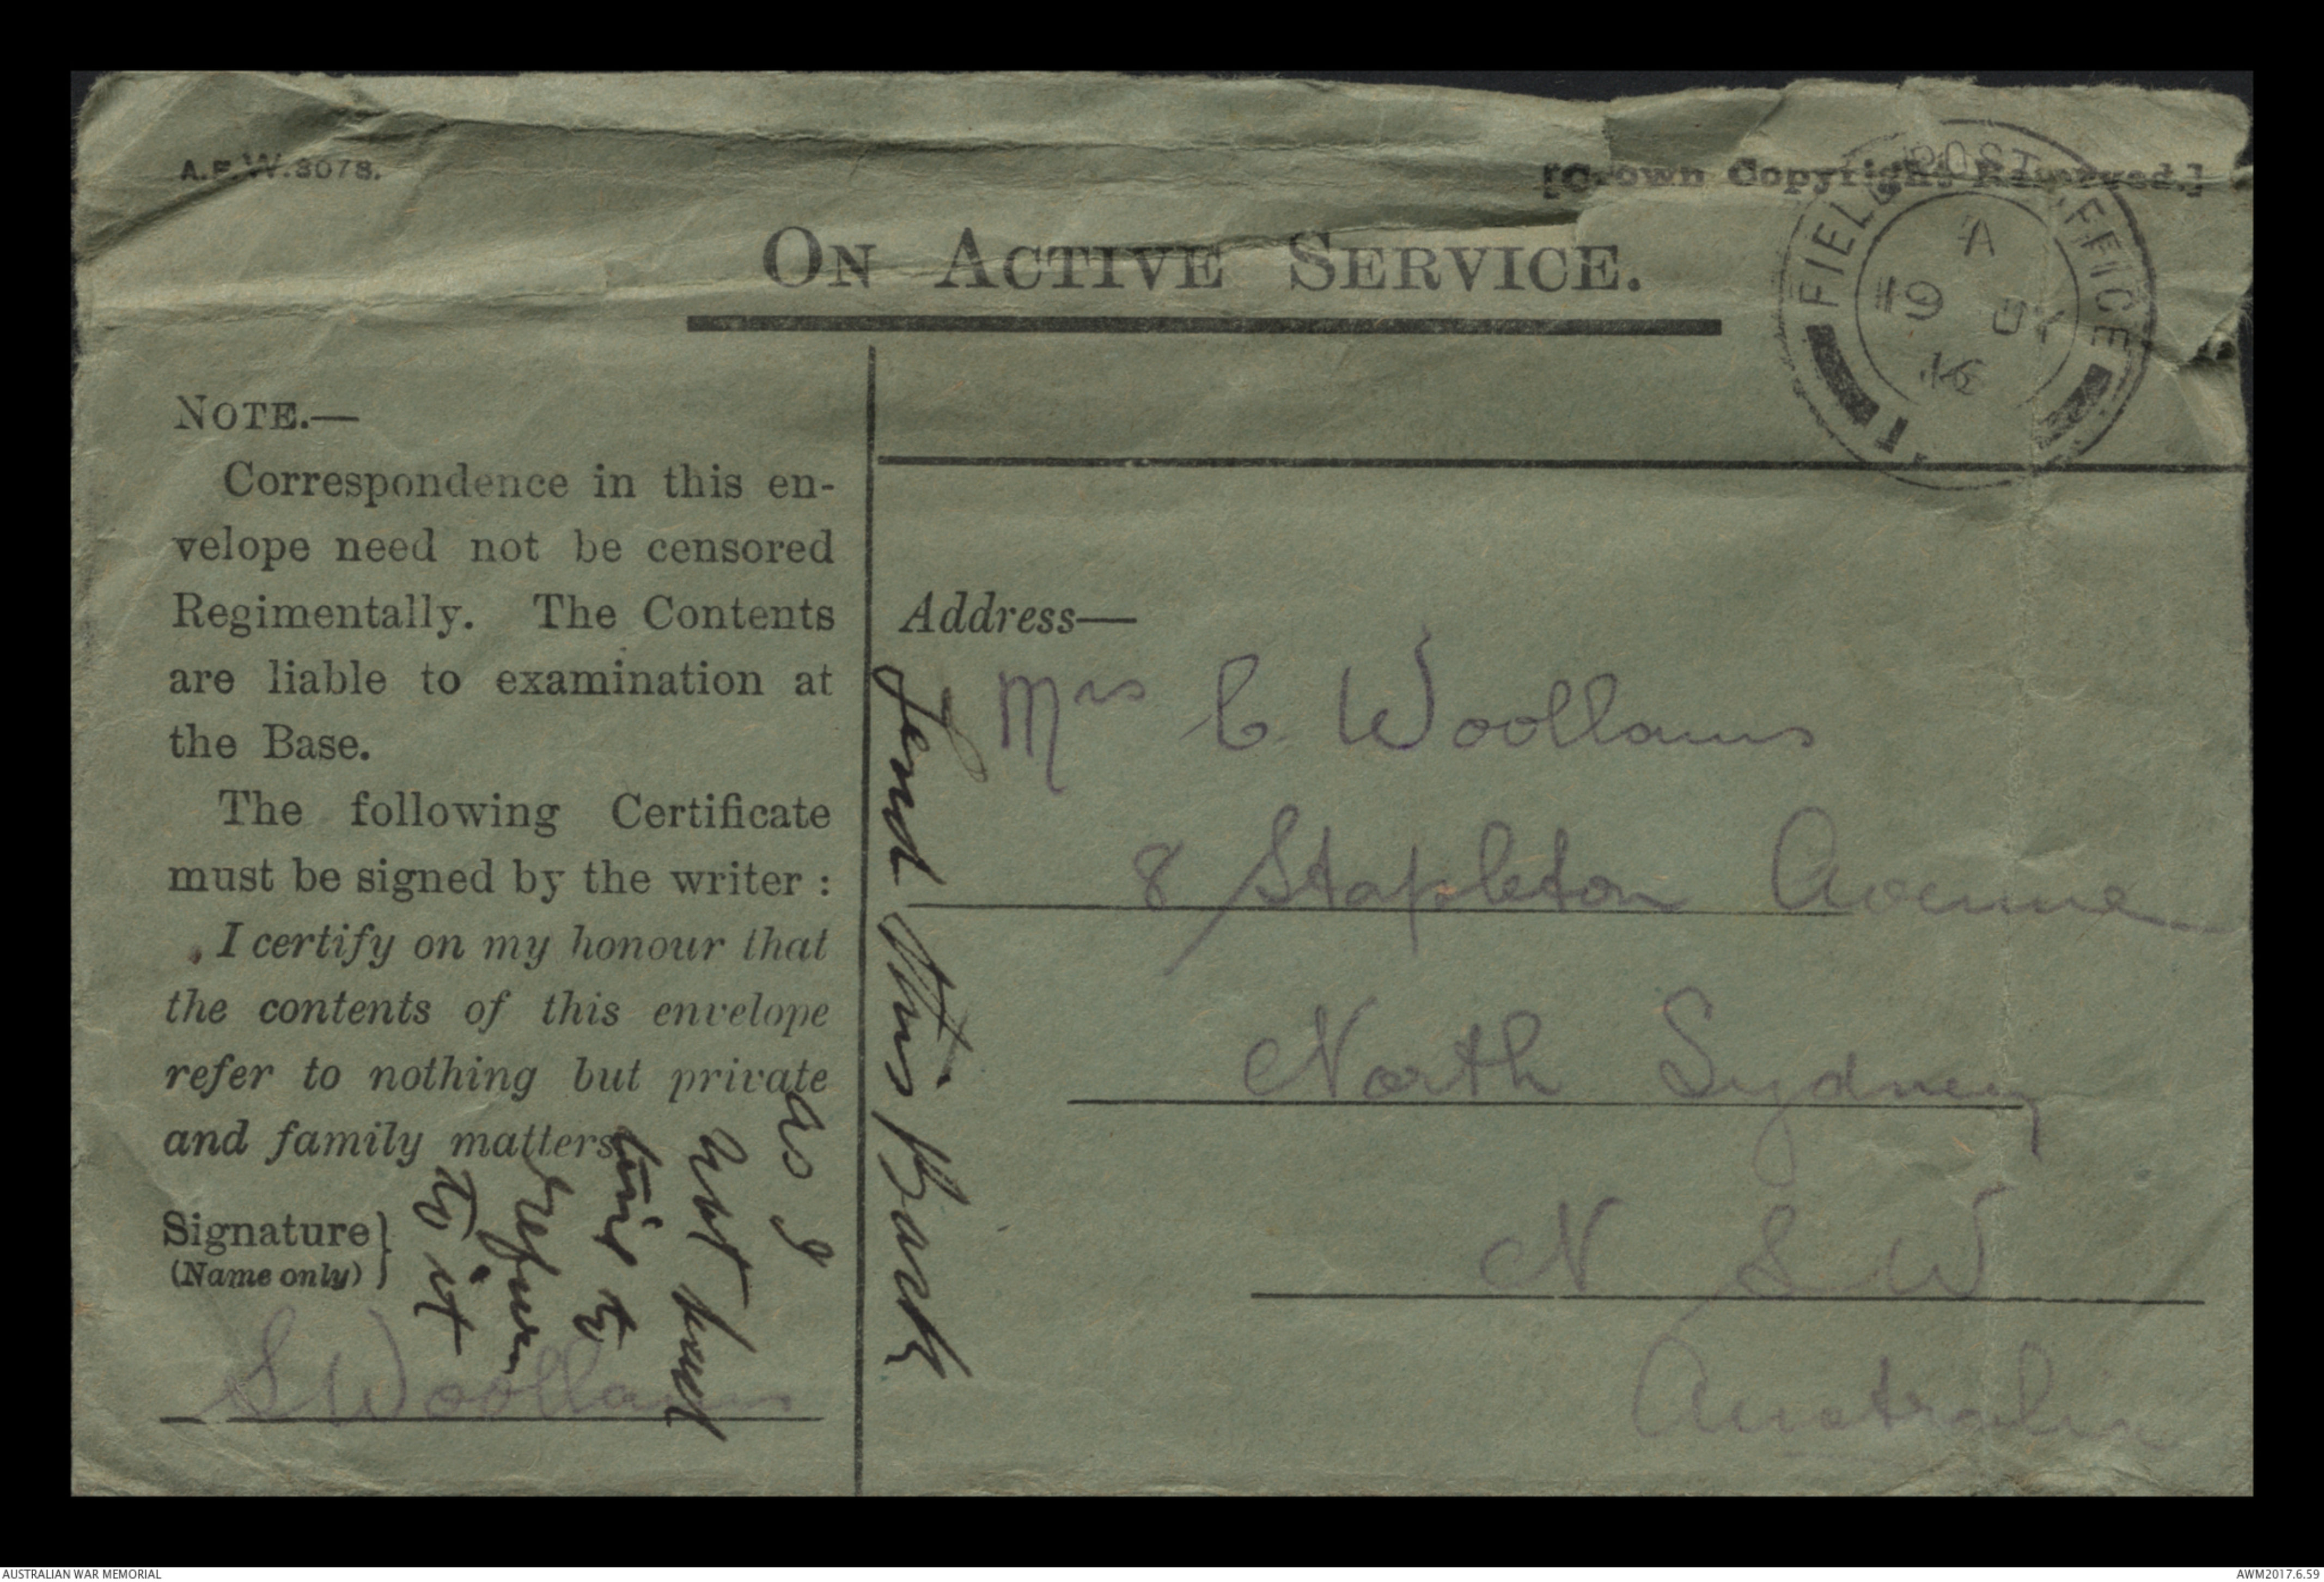 A.F.W.3078.
[Crown Copyright Reserved.]
FIELD POST OFFICE
A
19 JY
16
ON ACTIVE SERVICE.
NOTE.—
Correspondence in this en-
velope need not be censored
Regimentally. The Contents
are liable to examination at
the Base.
The following Certificate
must be signed by the writer :
I certify on my honour that
the contents of this envelope
refer to nothing but private
and family matters
Signature }
(Name only)
S Woollams
Address—
Mrs C Woollams
8 Stapleton Avenue
North Sydney
N S W
Australia
Send this Back
as I
not have
time to
to it
AUSTRALIAN WAR MEMORIAL
AWM2017.6.59